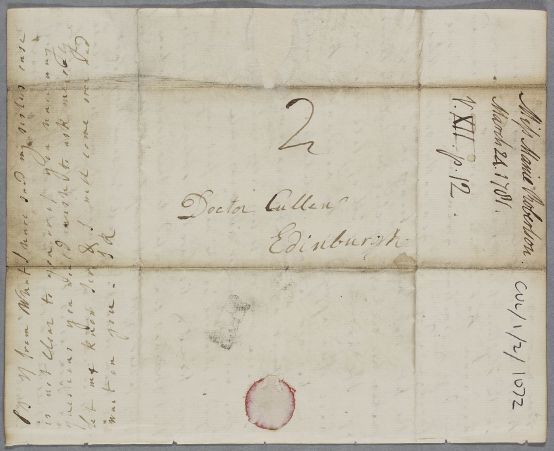 2
Doctor Cullen
Edinburgh
Miss Marrie Roberson.
March 28. 1781.
V. XII. p. 12.
CUL/1/2/1072
from What I have said my sisters case
is not Clear to you or if you have any
questions you would wish to ask
let me know Sir & I will come over and
wait on you